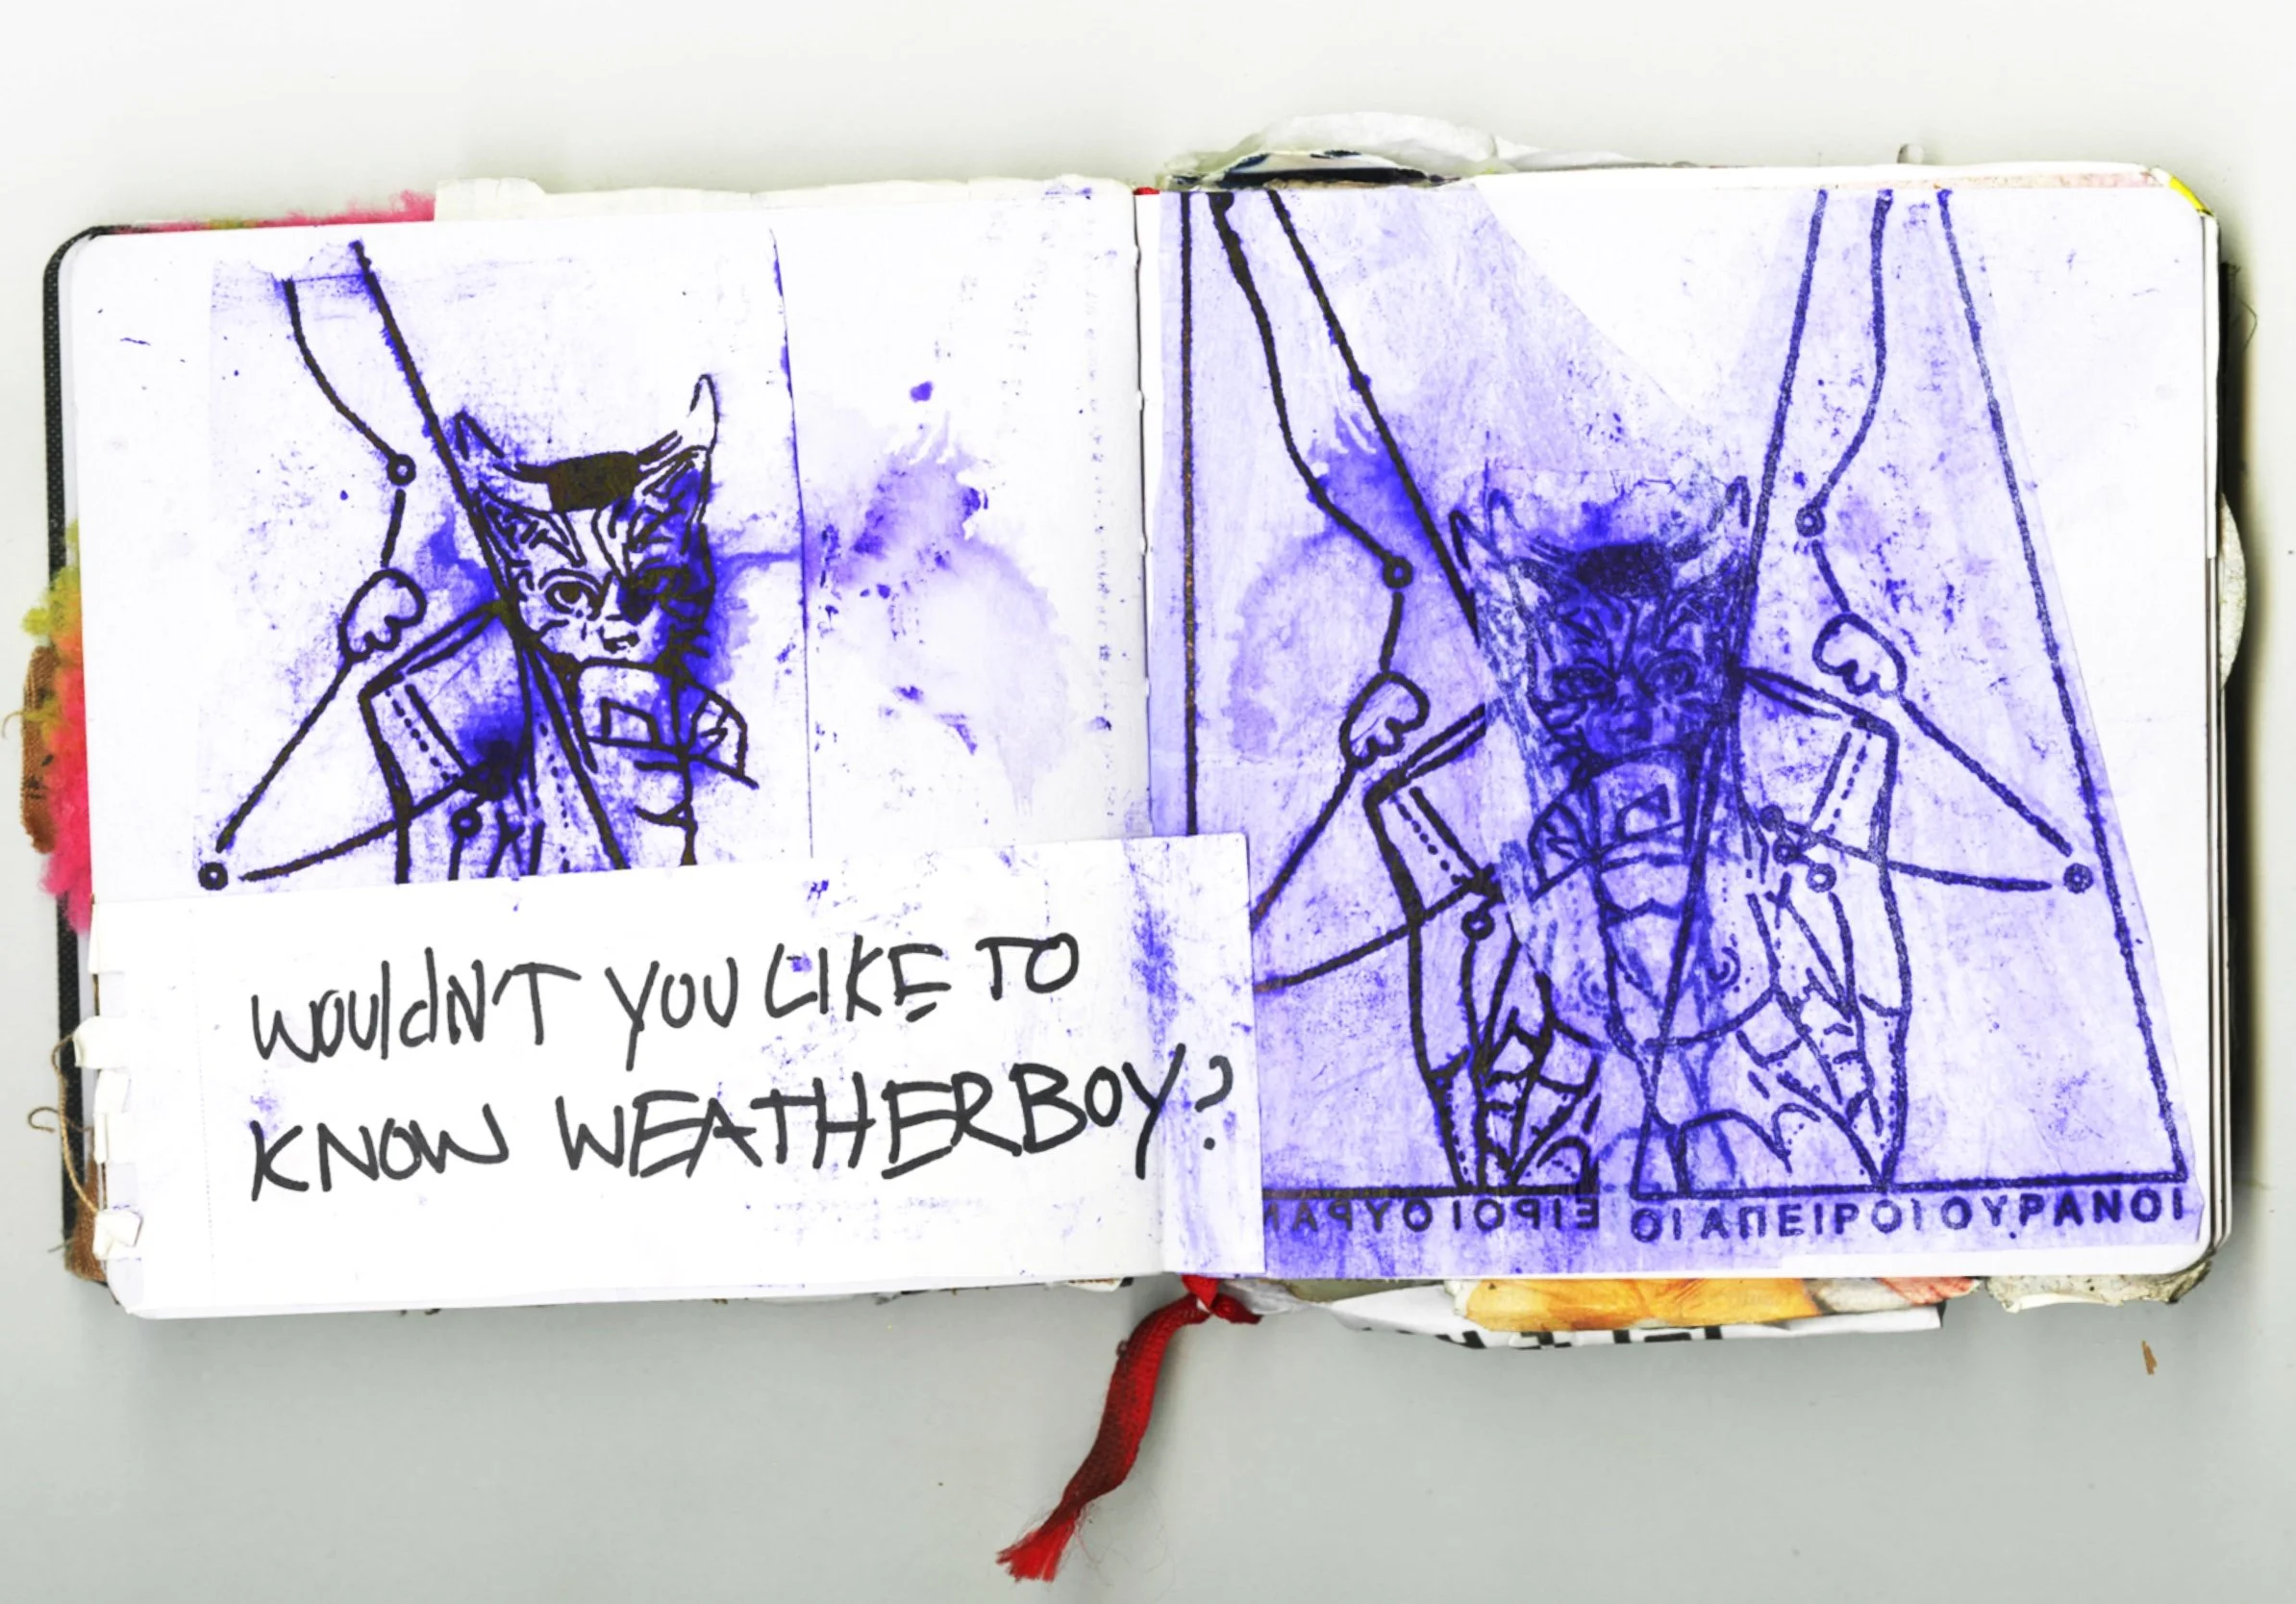 WOUldN'T YOU LIKE TO
KNOW WEATHERBOY?
ΕΙΡΟΙ ΟΥΡΑΝ
ΟΙ ΑΠΕΙΡΟΙ ΟΥΡΑΝΟΙ